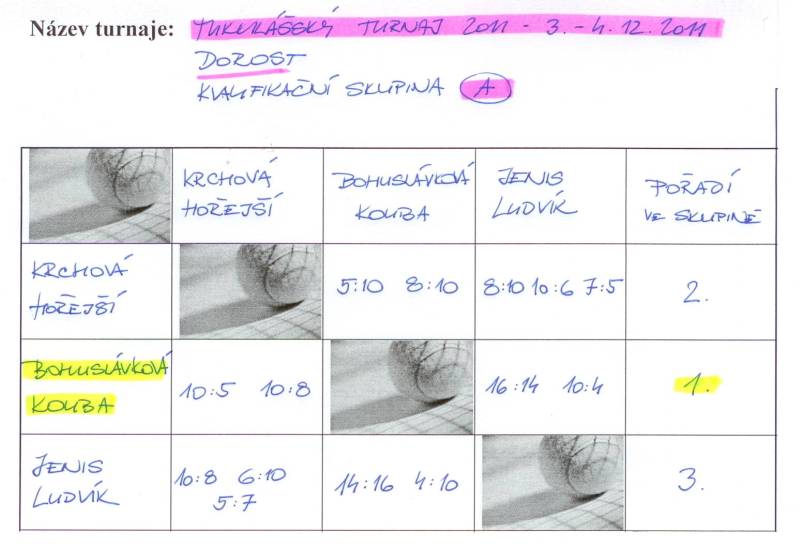 Název turnaje: MIKULÁŠSKÝ TURNAJ 2011 - 3. - 4. 12. 2011
DOROST
KVALIFIKAČNÍ SKUPINA A
KRCHOVÁ HOŘEJŠÍ BOHUSLÁVKOVÁ KOUBA JENIS LUDVÍK POŘADÍ VE SKUPINĚ
KRCHOVÁ HOŘEJŠÍ 5:10 8:10 8:10 10:6 7:5 2.
BOHUSLÁVKOVÁ KOUBA 10:5 10:8 16:14 10:4 1.
JENIS LUDVÍK 10:8 6:10 5:7 14:16 4:10 3.